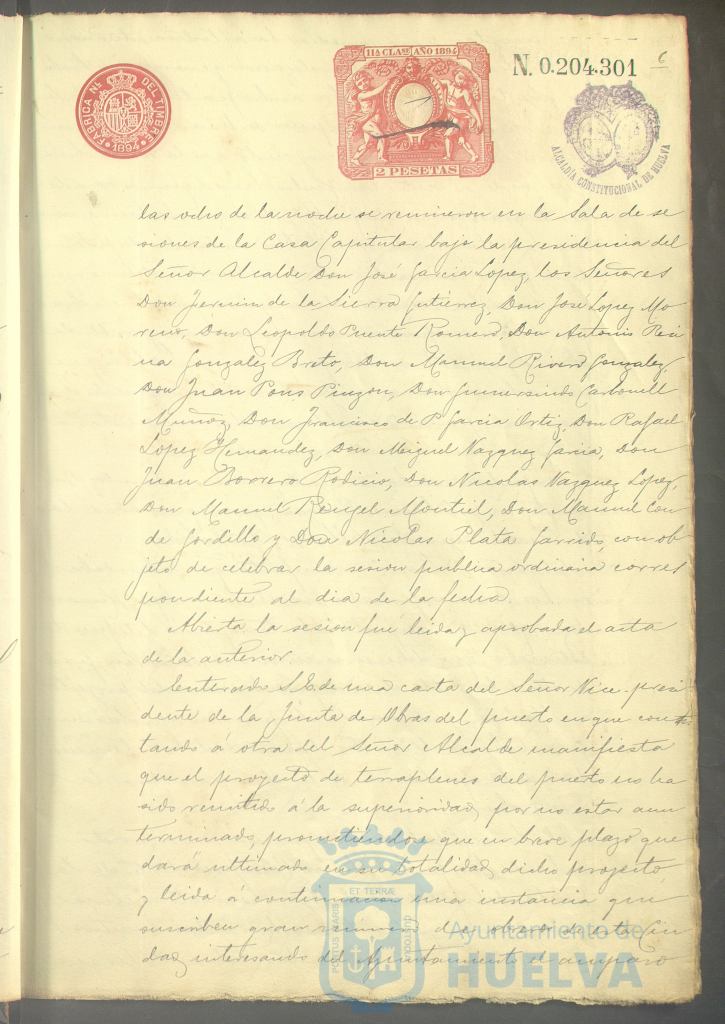 FABRICA Nª. DEL TIMBRE
1894
11ª CLASE AÑO 1894
2 PESETAS
N. 0.204.301
6
ALCALDIA CONSTITUCIONAL DE HUELVA
las ocho de la noche se reunieron en la Sala de se
siones de la Casa Capitular bajo la presidencia del
Señor Alcalde Don José Garcia Lopez, los Señores
Don Jermin de la Sierra Gutiérrez, Don José Lopez Mo
reno, Don Leopoldo Puente Romero, Don Antonio
Gonzalez Breto, Don Manuel Rivero Gonzalez,
Don Juan Pons Pinzon, Don Gumersindo Carbonell
Muñoz, Don Francisco de P. Garcia Ortiz, Don Rafael
Lopez Hernandez, Don Miguel Vazquez Garcia, Don
Juan Borrero Rodicio, Don Nicolas Vazquez Lopez,
Don Manuel Rengel Montiel, Don Manuel Con
de Gordillo y Don Nicolas Plata Garrido, con ob
jeto de celebrar la sesion publica ordinaria corres
pondiente al dia de la fecha.
Abierta la sesion fué leida y aprobada el acta
de la anterior.
Enterado S. E. de una carta del Señor Vice-presi
dente de la Junta de Obras del puerto en que contes
tando á otra del Señor Alcalde manifiesta
que el proyecto de terraplenes del puerto no ha
sido remitido á la superioridad por no estar aun
terminado, prometiendose que en breve plazo que
dará ultimado en su totalidad dicho proyecto,
y leida á continuacion una instancia que
suscriben gran numero de obreros de esta Ciu
dad interesando del Ayuntamiento el amparo
PORTUS MARIS ET TERRÆ
Ayuntamiento de
HUELVA